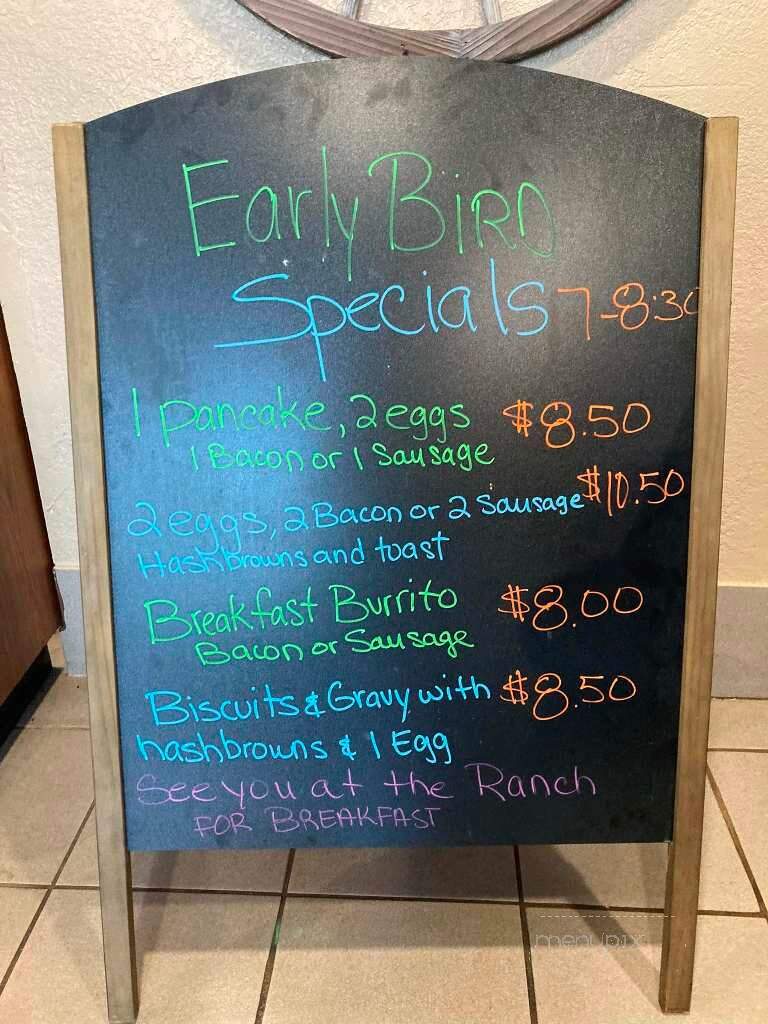 Early BIRD
Specials 7-8:30
1 pancake, 2 eggs $8.50
1 Bacon or 1 Sausage
2 eggs, 2 Bacon or 2 Sausage $10.50
Hashbrowns and toast
Breakfast Burrito $8.00
Bacon or Sausage
Biscuits & Gravy with $8.50
hashbrowns & 1 Egg
See you at the Ranch
FOR BREAKFAST
menupix